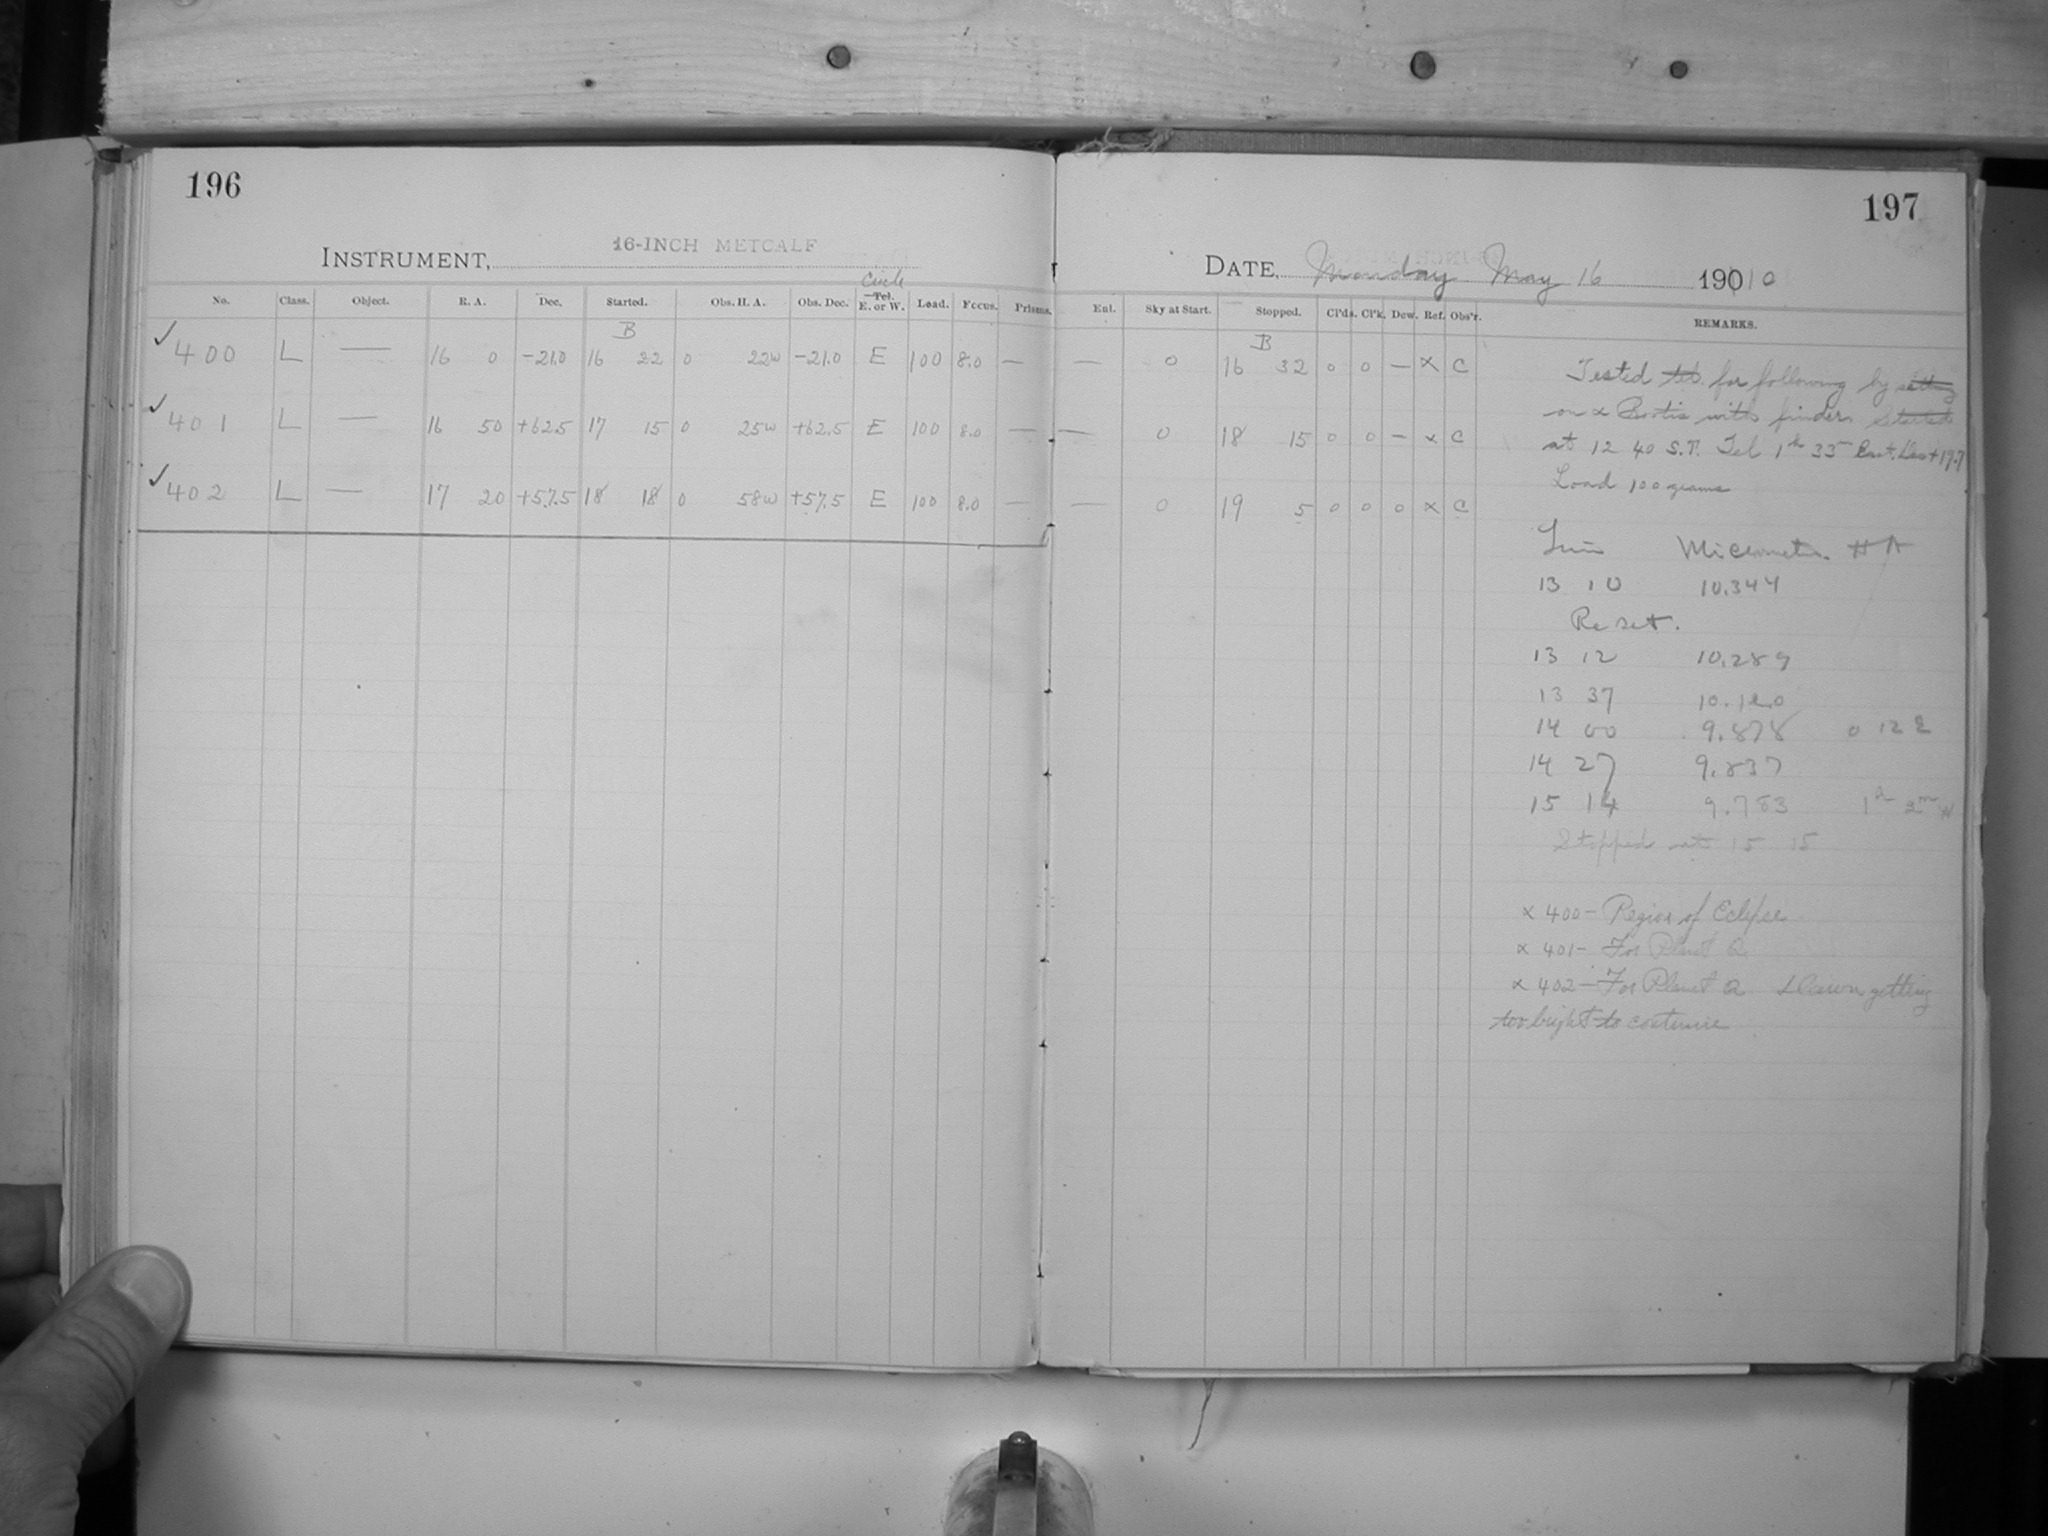 196
197
INSTRUMENT, 16-INCH METCALF
DATE, Monday May 16 190 10
Circle
No. Class. Object. R. A. Dec. Started. Obs. H. A. Obs. Dec. Tel. E. or W. Load. Focus. Prisms. Enl. Sky at Start. Stopped. Cl'ds. Cl'k. Dew. Ref. Obs'r. REMARKS.
B B
✓ 400 L — 16 0 -21.0 16 22 0 22w -21.0 E 100 8.0 — — 0 16 32 0 0 — x C
✓ 401 L — 16 50 +62.5 17 15 0 25w +62.5 E 100 8.0 — — 0 18 15 0 0 — x C
✓ 402 L — 17 20 +57.5 18 18 0 58w +57.5 E 100 8.0 — — 0 19 5 0 0 0 x C
Tested tel. for following by setting
on α Bootis with finder. Started
at 12 40 S.T. Tel 1h 33m East. Dec +19.7
Load 100 grams
Time Micrometer H A
13 10 10.344
Reset.
13 12 10.289
13 37 10.120
14 00 9.878 0 12 E
14 27 9.837
15 14 9.783 1h 2m W
Stopped at 15 15
x 400 - Region of Eclipse
x 401 - For Planet Q
x 402 - For Planet Q Dawn getting
too bright to continue